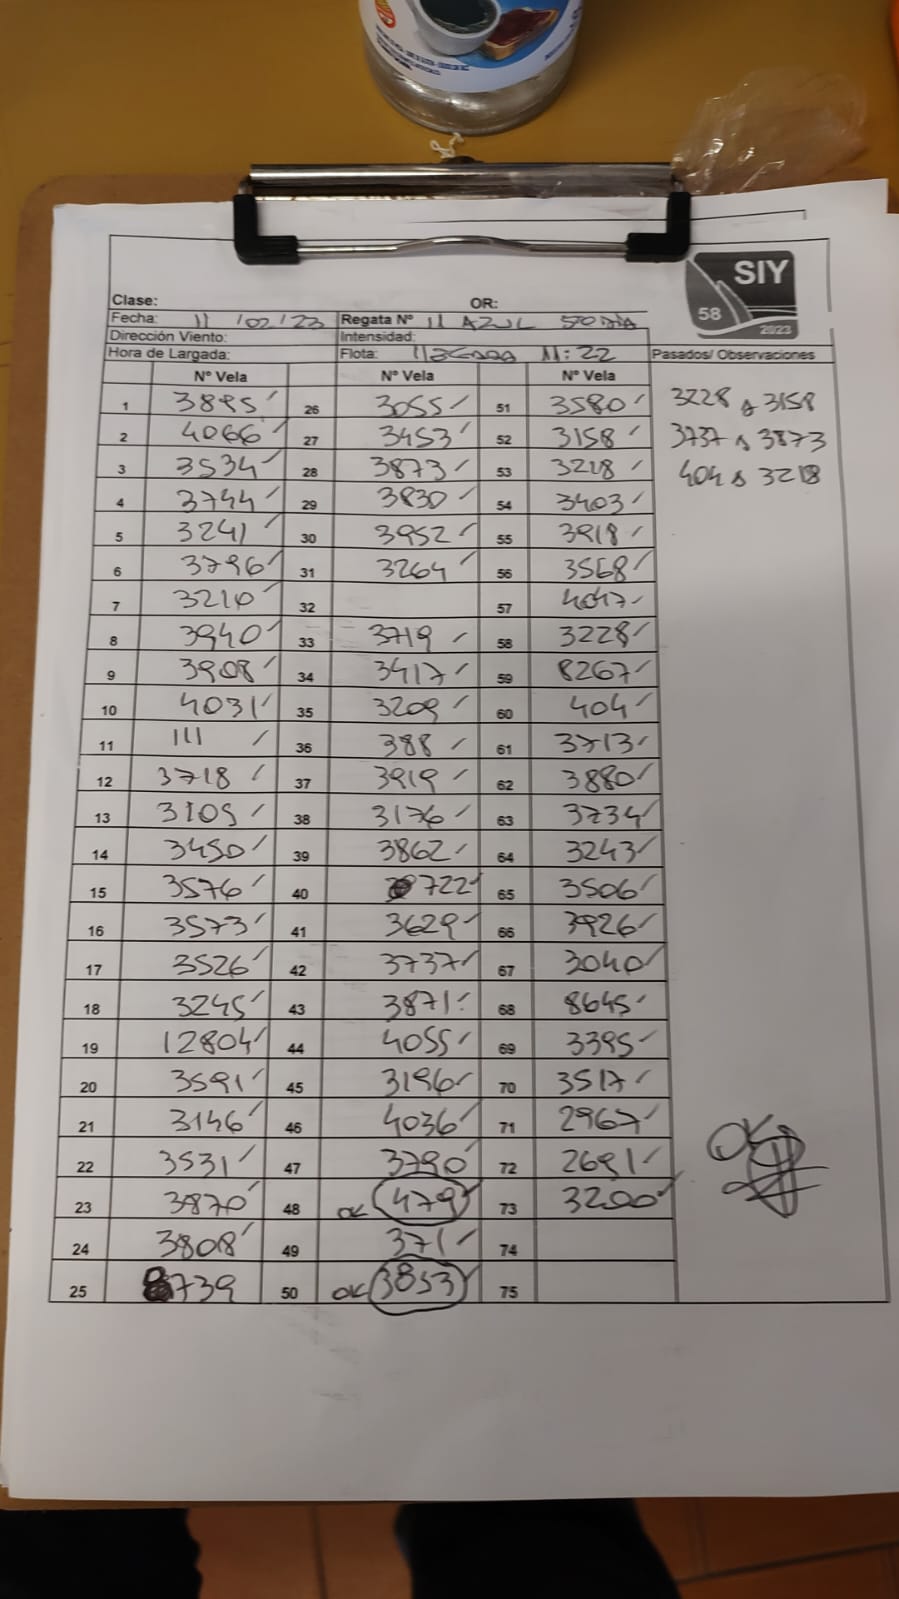 SIY
58
2023
Clase: OR:
Fecha: 11/02/23 Regata Nº 11 AZUL 5TO DIA
Dirección Viento: Intensidad:
Hora de Largada: Flota: 11:22 Pasados/ Observaciones
Nº Vela Nº Vela Nº Vela
1 3895 26 3055 51 3580 3228 3158
2 4066 27 3453 52 3158 3737 3873
3 3534 28 3873 53 3218 404 3218
4 3744 29 3830 54 3403
5 3241 30 3952 55 3918
6 3796 31 3264 56 3568
7 3210 32 57 4047
8 3940 33 3719 58 3228
9 3908 34 3417 59 8267
10 4031 35 3209 60 404
11 111 36 388 61 3713
12 3718 37 3919 62 3880
13 3105 38 3176 63 3734
14 3450 39 3862 64 3243
15 3576 40 722 65 3506
16 3573 41 3629 66 3926
17 3526 42 3737 67 3040
18 3245 43 3871 68 8645
19 12804 44 4055 69 3395
20 3591 45 3196 70 3517
21 3146 46 4036 71 2967
22 3531 47 3790 72 2691
23 3870 48 OK 479 73 3200
24 3808 49 371 74
25 8739 50 OK 3853 75
OK